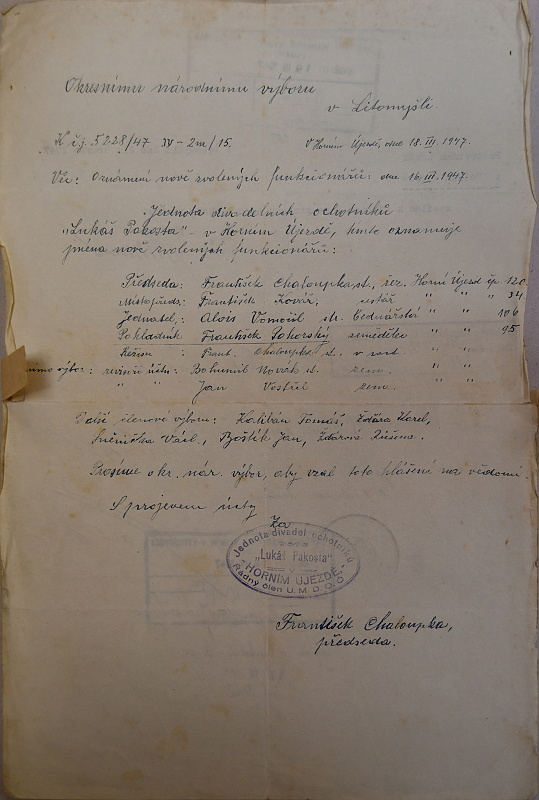 Okresnímu národnímu výboru
v Litomyšli.
K č.j. 5228/47 IV-2m/15. V Horním Újezdě, dne 18.III.1947.
Věc: Oznámení nově zvolených funkcionářů: dne 16.III.1947.
Jednota divadelních ochotníků
"Lukáš Pakosta" - v Horním Újezdě, tímto oznamuje
jména nově zvolených funkcionářů:
Předseda: František Chaloupka st., řez. Horní Újezd čp. 120
Místopředs.: František Kovář, " " 34
Jednatel,: Alois Vomočil st. " " 106
Pokladník František Pohorský zemědělec " " 95
Režisér: Frant. Chaloupka st.
mimo výbor: revisoři účtů: Bohumil Novák st. zem.
" " Jan Vostřel zem.
Další členové výboru: Kalibán Tomáš, Žďára Karel,
Sněnička Václ., Boštík Jan, Žďárová Růžena.
Prosíme okr. nár. výbor, aby vzal toto hlášení na vědomí.
S projevem úcty
Za
Jednota divadel. ochotníků
„Lukáš Pakosta"
v
HORNÍM ÚJEZDĚ
Řádný člen Ú.M.D.O.Č.
František Chaloupka,
předseda.